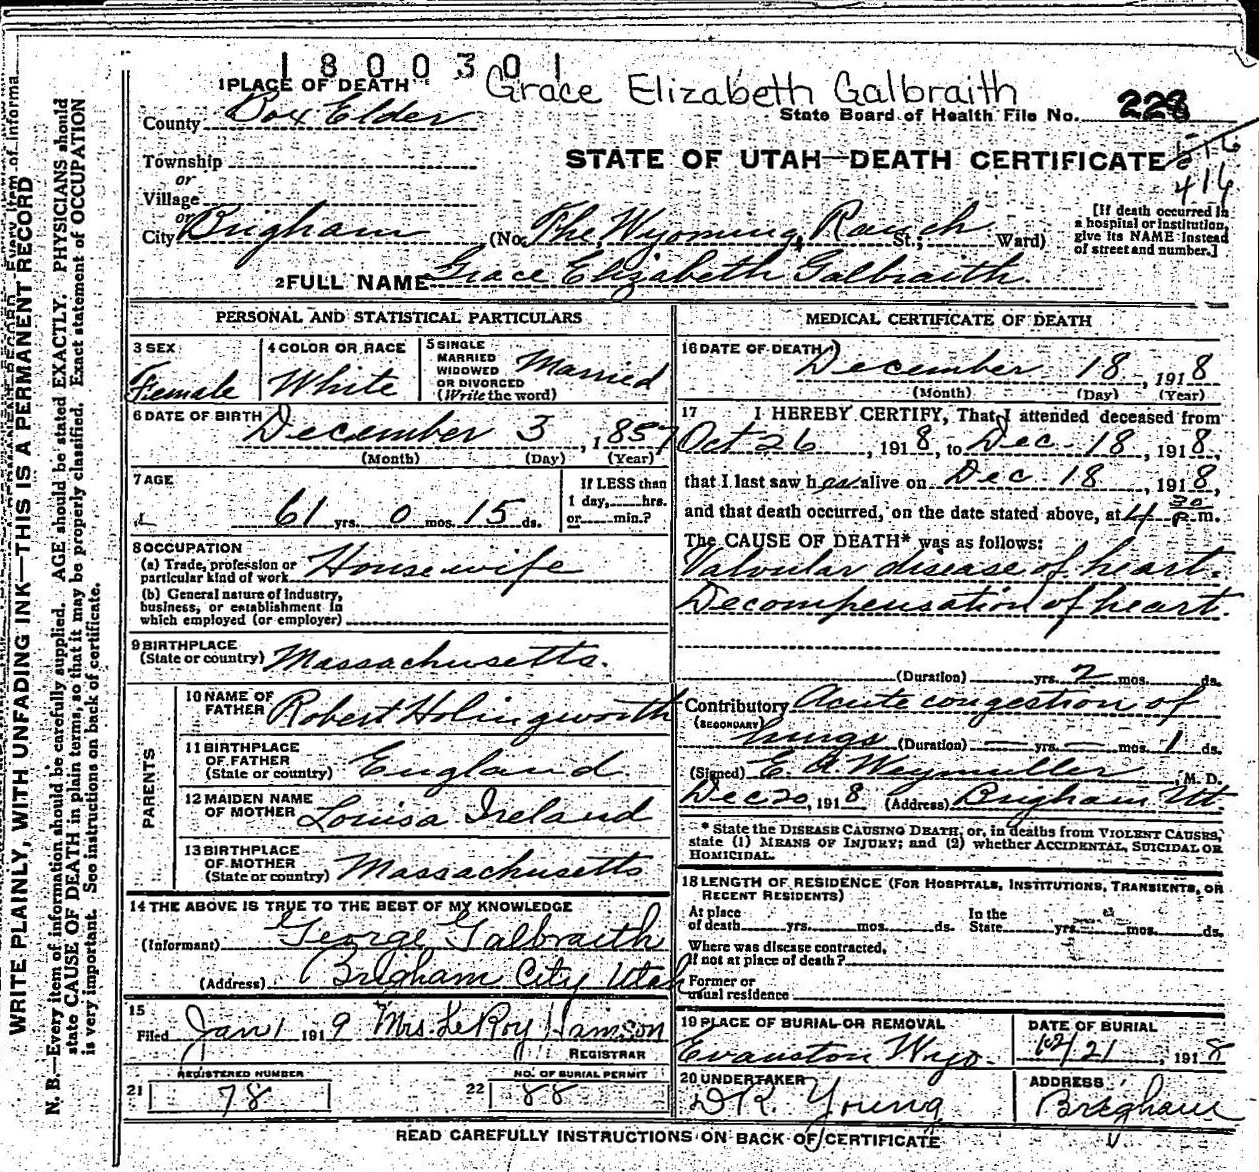 1800301
Grace Elizabeth Galbraith
1 PLACE OF DEATH
County Box Elder
State Board of Health File No. 228
Township
or
Village
or
City Brigham
STATE OF UTAH—DEATH CERTIFICATE
416
(No. The Wyoming, Ranch St.; Ward)
[If death occurred in
a hospital or institution,
give its NAME instead
of street and number.]
2 FULL NAME Grace Elizabeth Galbraith
PERSONAL AND STATISTICAL PARTICULARS
3 SEX Female
4 COLOR OR RACE White
5 SINGLE
MARRIED
WIDOWED
OR DIVORCED
(Write the word)
Married
6 DATE OF BIRTH December 3, 1857
(Month) (Day) (Year)
7 AGE
61 yrs. 0 mos. 15 ds.
If LESS than
1 day, hrs.
or min.?
8 OCCUPATION
(a) Trade, profession or
particular kind of work Housewife
(b) General nature of industry,
business, or establishment in
which employed (or employer)
9 BIRTHPLACE
(State or country) Massachusetts.
PARENTS
10 NAME OF
FATHER Robert Holingworth
11 BIRTHPLACE
OF FATHER
(State or country) England
12 MAIDEN NAME
OF MOTHER Louisa Ireland
13 BIRTHPLACE
OF MOTHER
(State or country) Massachusetts
14 THE ABOVE IS TRUE TO THE BEST OF MY KNOWLEDGE
(Informant) George Galbraith
(Address) Brigham City Utah
15
Filed Jan 1 1919 Mrs. LeRoy Hamson
REGISTRAR
REGISTERED NUMBER
21 78
NO. OF BURIAL PERMIT
22 88
MEDICAL CERTIFICATE OF DEATH
16 DATE OF DEATH
December 18, 1918
(Month) (Day) (Year)
17 I HEREBY CERTIFY, That I attended deceased from
Oct 26, 1918, to Dec. 18 1918,
that I last saw her alive on Dec. 18, 1918,
and that death occurred, on the date stated above, at 4 30 P. m.
The CAUSE OF DEATH* was as follows:
Valvular disease of heart.
Decompensation of heart.
(Duration) yrs. 2 mos. ds.
Contributory Acute congestion of
(SECONDARY)
lungs (Duration) — yrs. — mos. 1 ds.
(Signed) E. A. Weymuller, M. D.
Dec 20, 1918 (Address) Brigham Ut.
* State the DISEASE CAUSING DEATH, or, in deaths from VIOLENT CAUSES,
state (1) MEANS OF INJURY; and (2) whether ACCIDENTAL, SUICIDAL OR
HOMICIDAL.
18 LENGTH OF RESIDENCE (FOR HOSPITALS, INSTITUTIONS, TRANSIENTS, OR
RECENT RESIDENTS)
At place
of death yrs. mos. ds.
In the
State yrs. mos. ds.
Where was disease contracted,
if not at place of death?
Former or
usual residence
19 PLACE OF BURIAL OR REMOVAL
Evanston Wyo.
DATE OF BURIAL
12/21, 1918
20 UNDERTAKER
D R. Young
ADDRESS
Brigham
READ CAREFULLY INSTRUCTIONS ON BACK OF CERTIFICATE
WRITE PLAINLY, WITH UNFADING INK—THIS IS A PERMANENT RECORD
N. B.—Every item of information should be carefully supplied. AGE should be stated EXACTLY. PHYSICIANS should
state CAUSE OF DEATH in plain terms, so that it may be properly classified. Exact statement of OCCUPATION
is very important. See instructions on back of certificate.